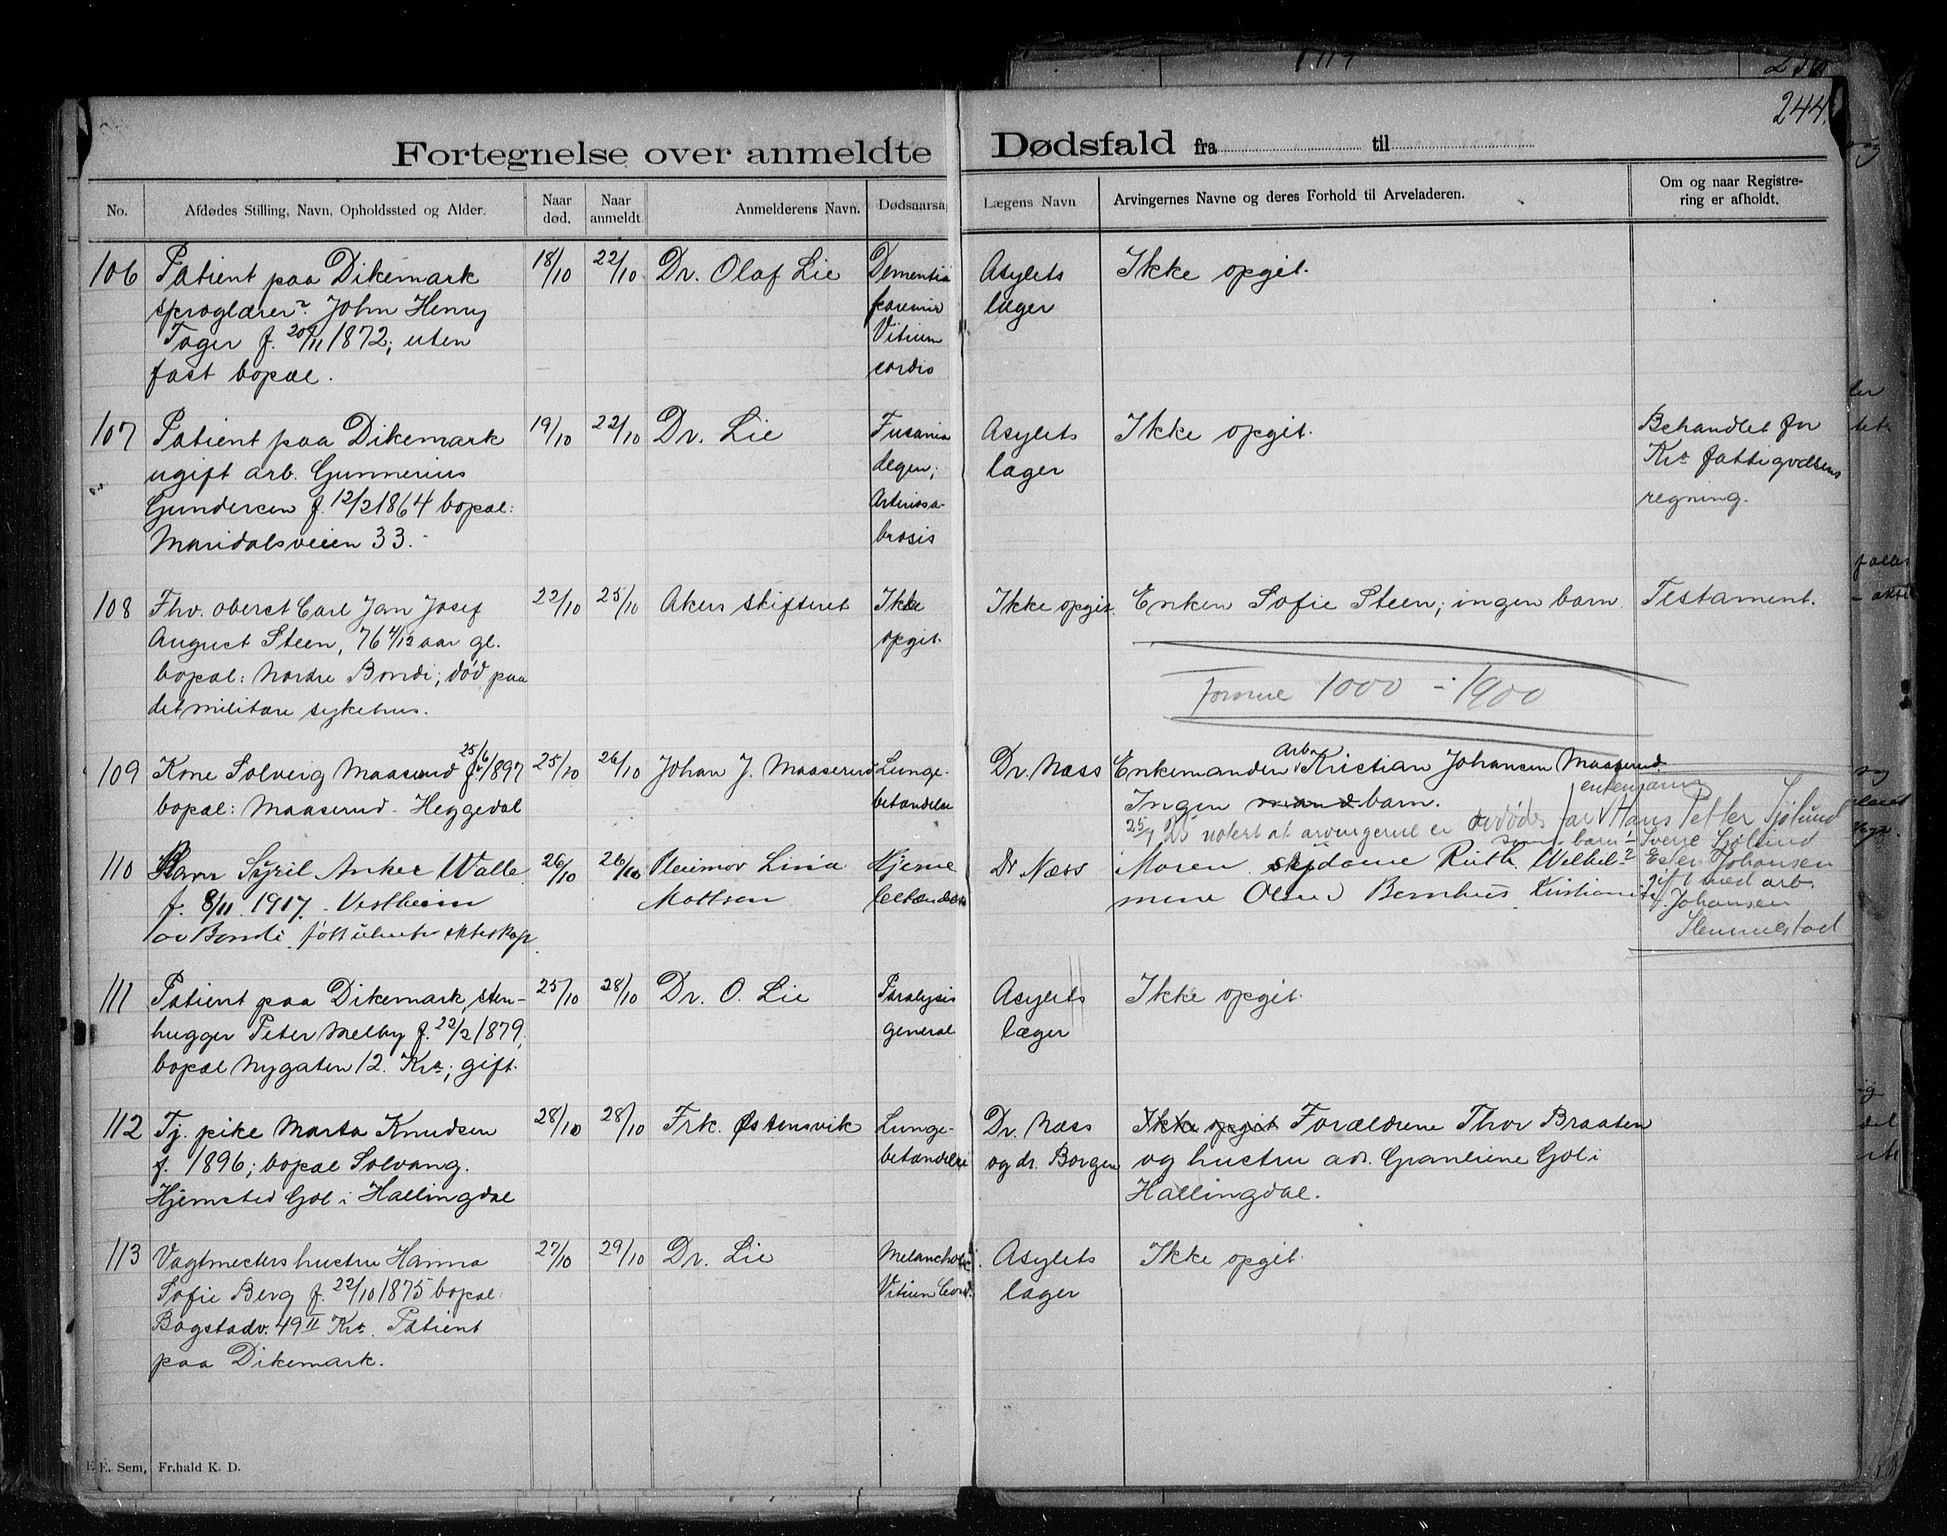 244.
Fortegnelse over anmeldte Dødsfald fra til
No.
Afdødes Stilling, Navn, Opholdssted og Alder.
Naar død.
Naar anmeldt.
Anmelderens Navn.
Dødsaarsa
Lægens Navn
Arvingernes Navne og deres Forhold til Arveladeren.
Om og naar Registre-
ring er afholdt.
106 Patient paa Dikemark 18/10 22/10 Dr. Olaf Lie Dementia Asylets Ikke opgit.
sproglærer John Henry læger
Tager f. 20/11 1872; uten Vitium
fast bopæl. cordis
107 Patient paa Dikemark 19/10 22/10 Dr. Lie Asylets Ikke opgit. Behandlet for
ugift arb. Gunnerius degen; læger Kra fattigvæsens
Gundersen f. 12/2 1864 bopæl: regning.
Maridalsveien 33.
108 Fhv. oberst Carl Jan Josef 22/10 25/10 Akers skifteret Ikke Ikke opgit Enken Sofie Steen; ingen barn. Testament.
August Steen, 76 4/12 aar gl. opgit.
bopæl: Nordre Bondi; død paa
det militære sykehus.
formue 1000 - 1900
109 Kone Solveig Maaserud f. 25/6 1897 25/10 26/10 Johan J. Maaserud Lunge- Dr. Næss Enkemanden arb. Kristian Johansen Maaserud.
bopæl: Maaserud - Heggedal betændelse Ingen mand barn.
25/9 25 notert at arvingerne er far Hans Petter Sjølund
Sverre Sjølund
110 Barn Syril Anker Walle 26/10 26/10 Lina Hjerne Dr. Næss Moren Ruth Wilhel- Ester Johansen
f. 8/11 1917. Vestheim Mattson betændelse mine Olsen Kristiania gift med arb.
av Bondi. født utenfor ekteskap Johansen
Slemmestad
111 Patient paa Dikemark, sten- 25/10 28/10 Dr. O. Lie Paralysis Asylets Ikke opgit.
hugger Peter Melby f. 22/2 1879, general læger
bopæl Nygaten 12. Kra; gift.
112 Tj. pike Marta Knudsen 28/10 28/10 Frk. Østensvik Lunge- Dr. Næss Ikke opgit Forældrene Thor Braaten
f. 1896; bopæl Solvang. betændelse og dr. Borgen og hustru adr. Granliene Gol i
Hjemsted Gol i Hallingdal Hallingdal.
113 Vagtmesters hustru Hanna 27/10 29/10 Dr. Lie Melancholi Asylets Ikke opgit.
Sofie Berg f. 22/10 1875 bopæl: Vitium Cord. læger
Bogstadv. 49 II Kra. Patient
paa Dikemark.
E. Sem, Fr.hald K. D.